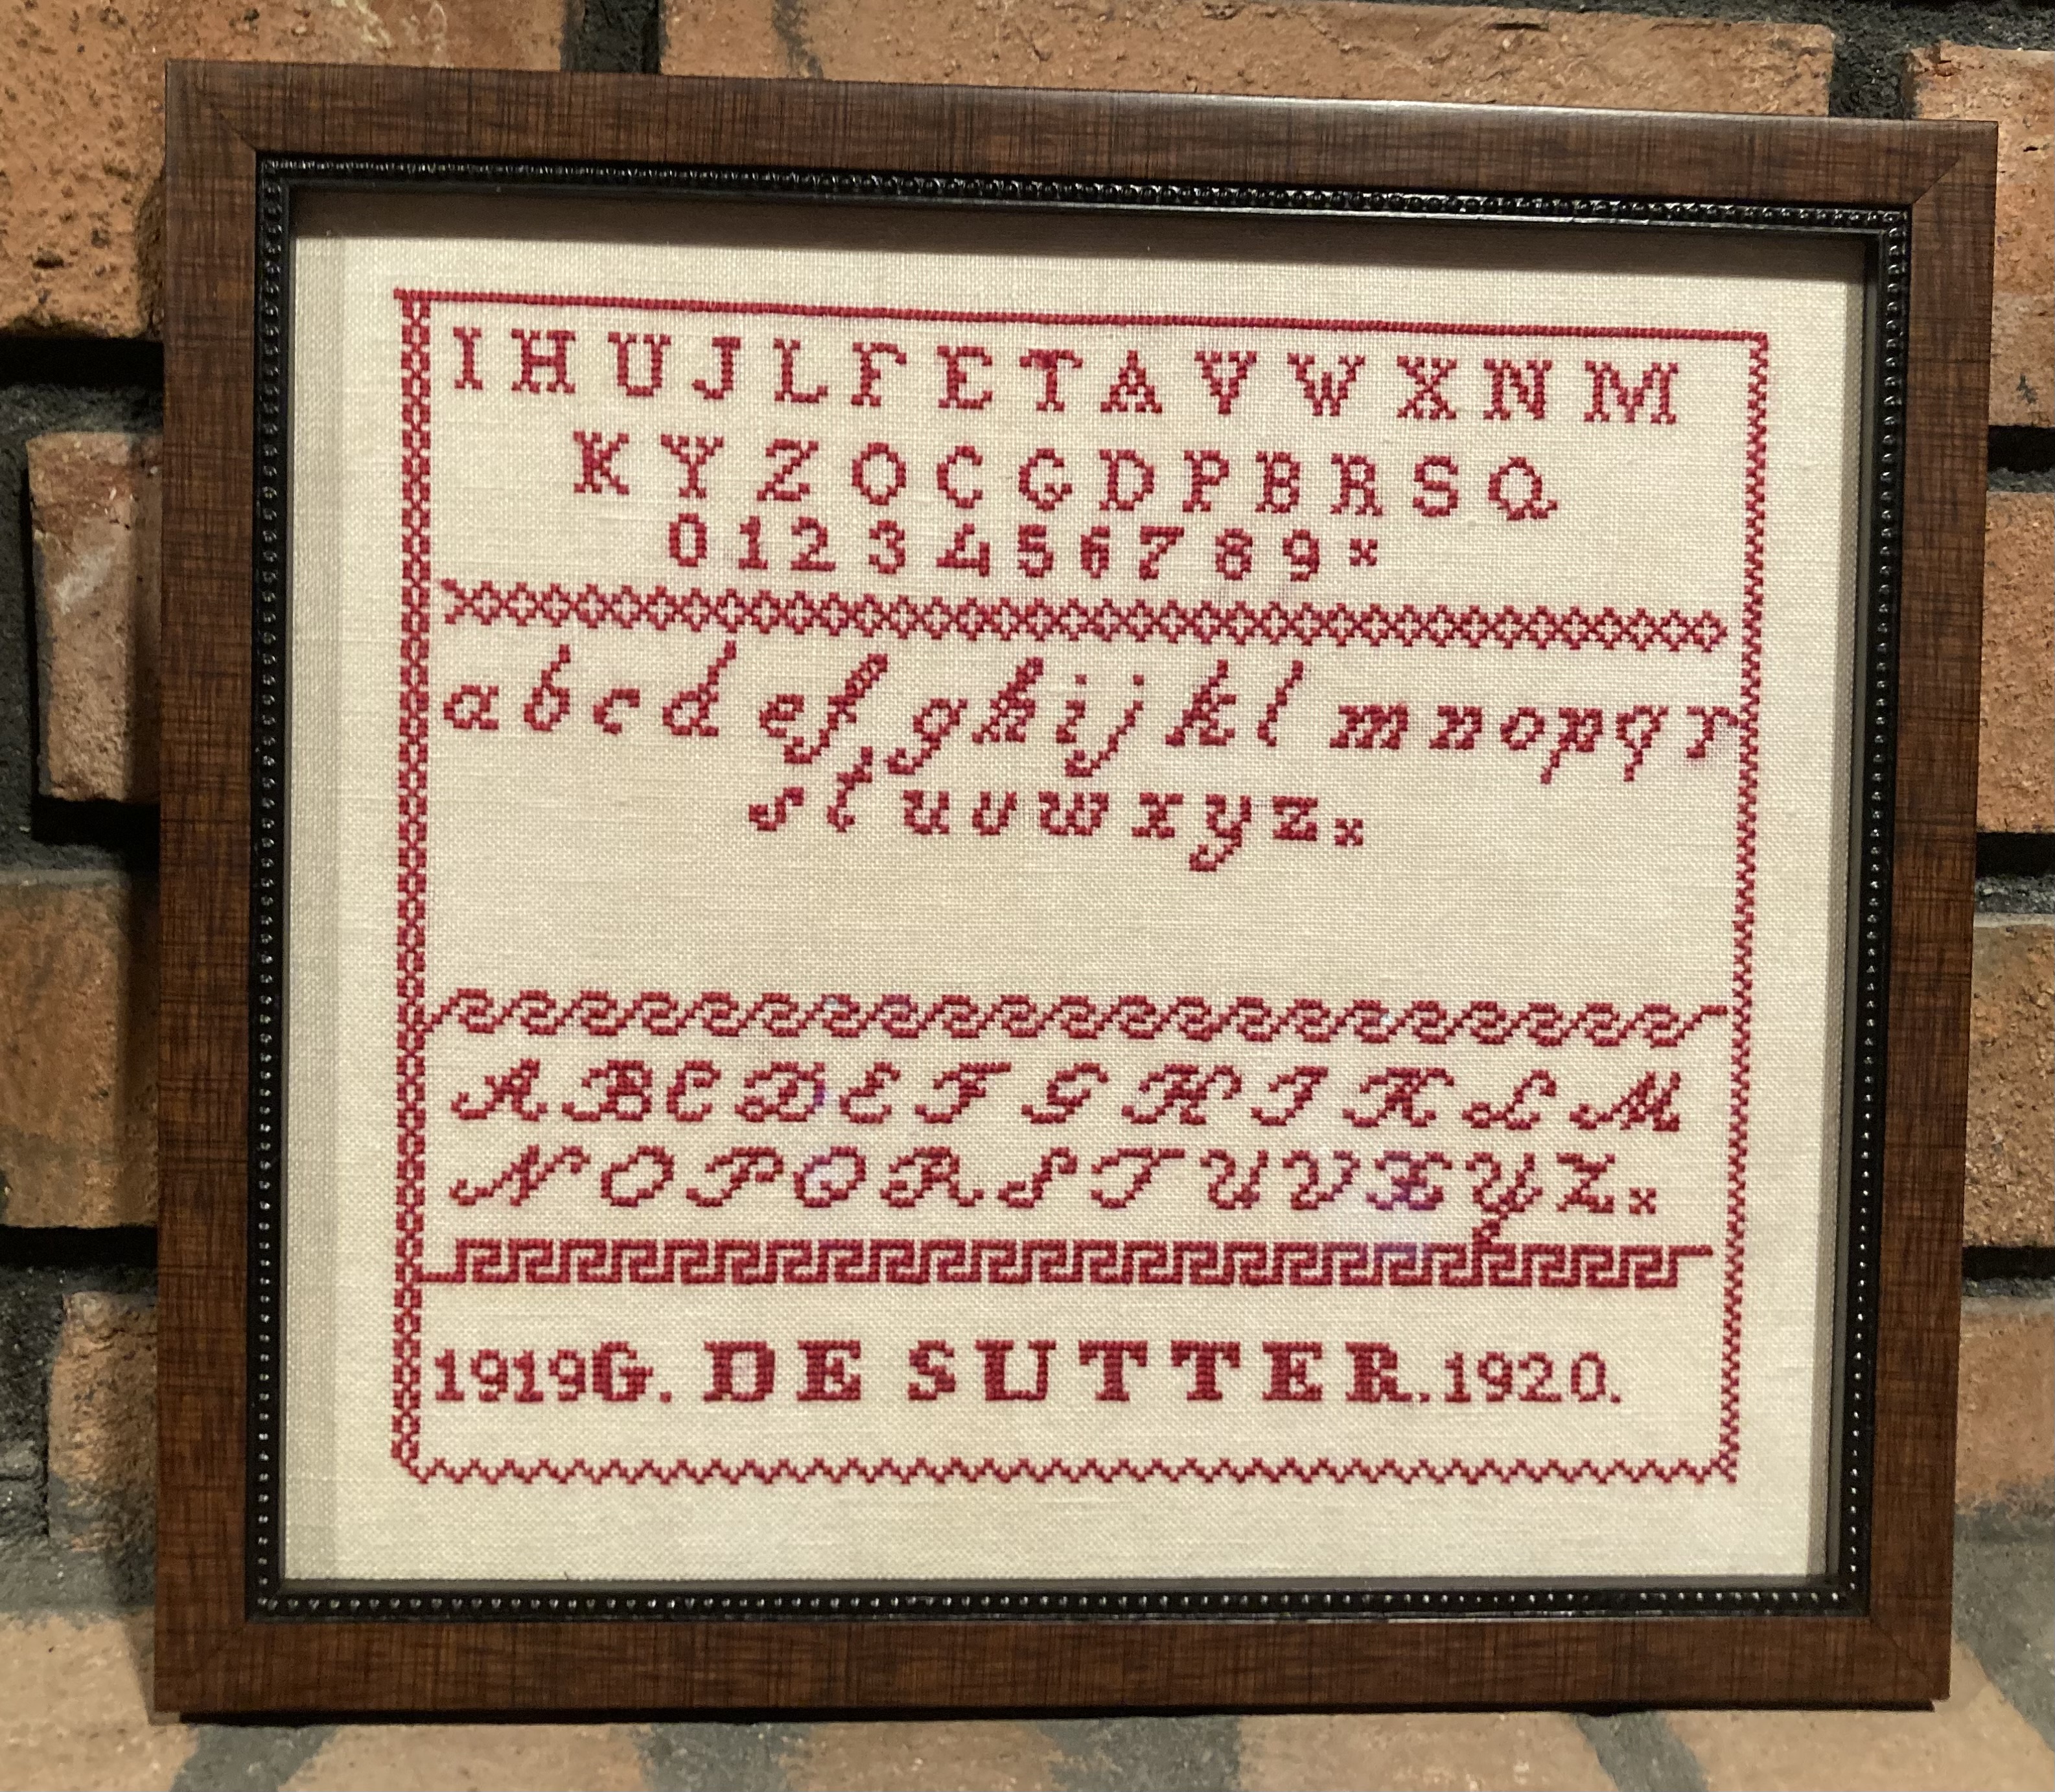 I H U J L F E T A V W X N M
K Y Z O C G D P B R S Q
0 1 2 3 4 5 6 7 8 9 ×
a b c d e f g h i j k l m n o p q r
s t u v w x y z ×
A B C D E F G H I K L M
N O P Q R S T U V X Y Z ×
1919 G. DE SUTTER. 1920.